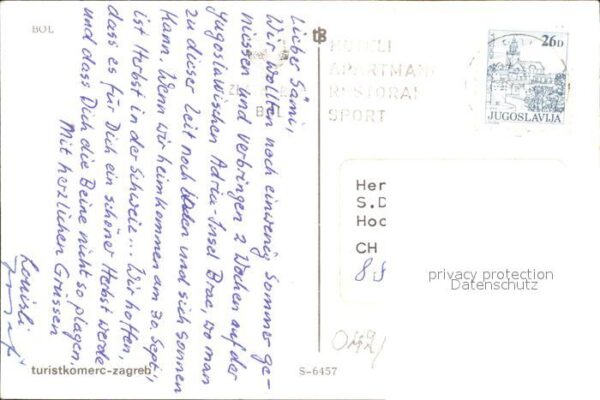 BOL
Lieber Sämi,
Wir wollten noch einwenig Sommer ge-
niessen und verbringen 2 Wochen auf der
Jugoslawischen Adria-Insel Brac, wo man
zu dieser Zeit noch baden und sich sonnen
kann. Wenn wir heimkommen am 30. Sept.,
ist Herbst in der Schweiz... Wir hoffen,
dass es für Dich ein schöner Herbst werde
und dass Dich die Beine nicht so plagen.
Mit herzlichen Grüssen
Louisli
turistkomerc-zagreb
tB
HOTELI
APARTMANI
RESTORAN
SPORT
26D
JUGOSLAVIJA
Her
S.D
Hoc
CH
privacy protection
Datenschutz
S-6457